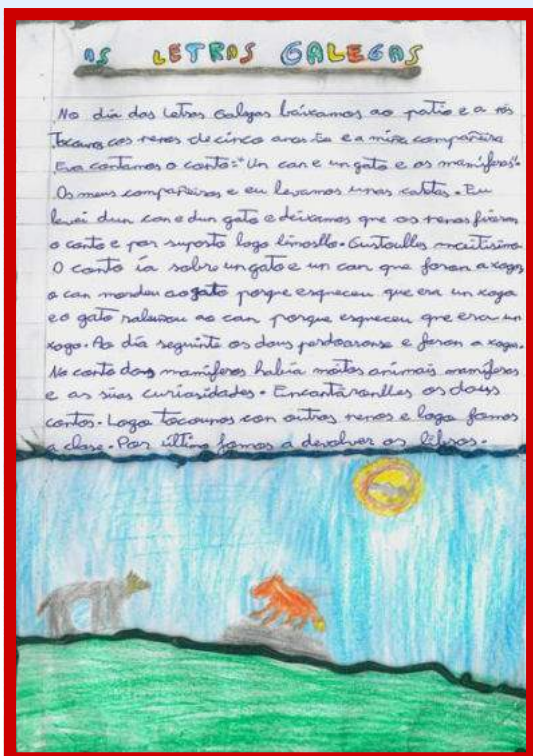 AS LETRAS GALEGAS
No día das Letras Galegas baixamos ao patio e a nós
tocounos cos nenos de cinco anos. Eu e a miña compañeira
Eva contamos o conto: "Un can e un gato e os mamíferos".
Os meus compañeiros e eu levamos unas caretas. Eu
levei dun can e dun gato e deixamos que os nenos fixeran
o conto e por suposto logo limosllo. Gustoulles moitísimo.
O conto ía sobre un gato e un can que foron a xogar,
o can mordeu ao gato porque esqueceu que era un xogo
e o gato rabuñou ao can porque esqueceu que era un
xogo. Ao día seguinte os dous perdoaronse e foron a xogar.
No conto dos mamíferos había moitos animais mamíferos
e as súas curiosidades. Encantáronlles os dous
contos. Logo tocounos con outros nenos e logo fomos
a clase. Por último fomos a devolver os libros.